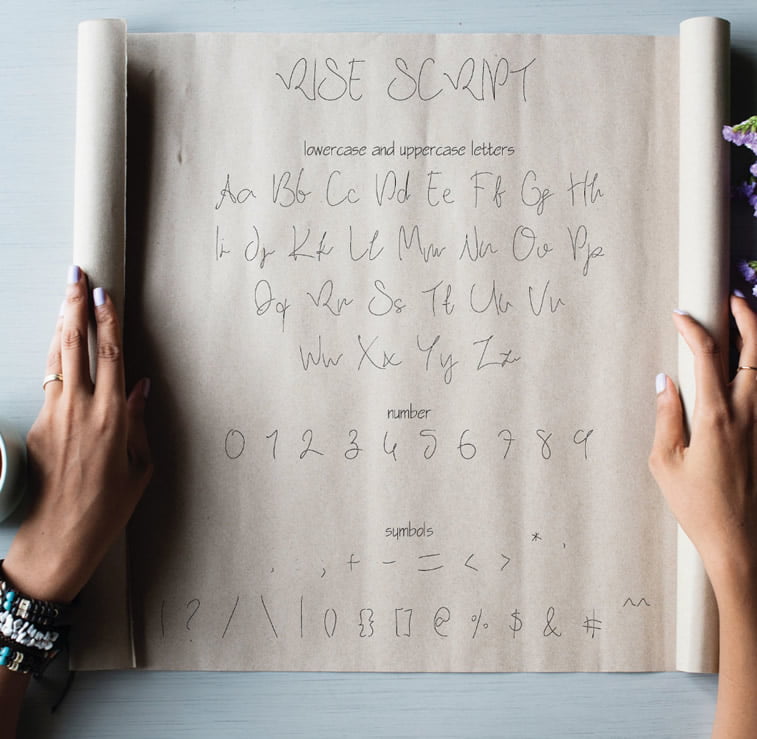 RISE SCRIPT
lowercase and uppercase letters
Aa Bb Cc Dd Ee Ff Gg Hh
Ii Jj Kk Ll Mm Nn Oo Pp
Qq Rr Ss Tt Uu Vv
Ww Xx Yy Zz
number
0 1 2 3 4 5 6 7 8 9
symbols
. : , + - = < > * '
! ? / \ | () {} [] @ % $ & # ^^